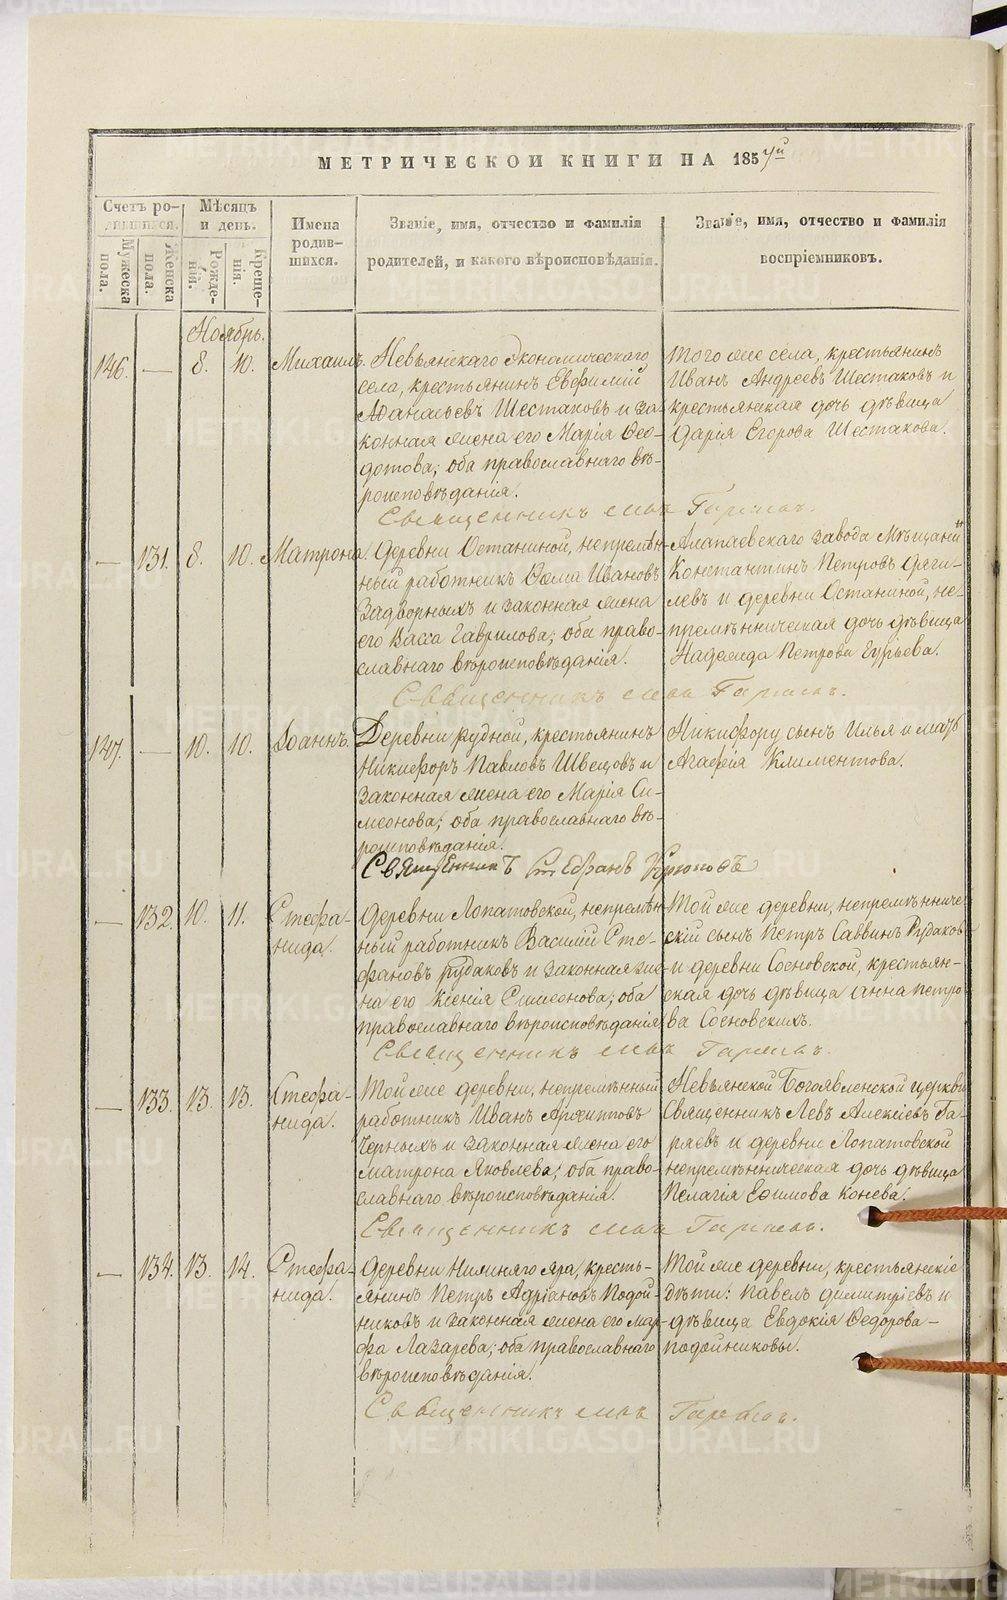 МЕТРИЧЕСКОИ КНИГИ НА 185 7й
Счетъ ро-
дившихся.
Мужеска пола.
Женска пола.
Мѣсяцъ
и день.
Рожденія.
Крещенія.
Имена
родив-
шихся.
Званіе, имя, отчество и фамилія
родителей, и какого вѣроисповѣданія.
Званіе, имя, отчество и фамилія
воспріемниковъ.
Ноябрь.
146. — 8. 10. Михаилъ.
Невьянскаго Экономическаго
села, крестьянинъ Евфимій
Аѳанасьевъ Шестаковъ и за-
конная жена его Марія Ѳео-
дотова; оба православнаго вѣ-
роисповѣданія.
Того же села, крестьянинъ
Иванъ Андреевъ Шестаковъ и
крестьянская дочь дѣвица
Дарія Егорова Шестакова.
Священникъ Левъ Гаряевъ.
— 131. 8. 10. Матрона.
Деревни Останиной, непремѣн-
ный работникъ Ѳома Ивановъ
Задворныхъ и законная жена
его Васса Гаврилова; оба право-
славнаго вѣроисповѣданія.
Алапаевскаго завода Мѣщанинъ
Константинъ Петровъ
и деревни Останиной, не-
премѣнническая дочь дѣвица
Надежда Петрова Гурьева.
Священникъ Левъ Гаряевъ.
147. — 10. 10. Іоаннъ.
Деревни Рудной, крестьянинъ
Никифоръ Павловъ Швецовъ и
законная жена его Марія Си-
меонова; оба православнаго вѣ-
роисповѣданія.
Никифору сынъ Илья и мать
Агафія Климентова.
Священникъ Стефанъ
— 132. 10. 11. Стефа-
нида.
Деревни Лопатовской, непремѣн-
ный работникъ Василій Сте-
фановъ Рудаковъ и законная же-
на его Ксенія Симеонова; оба
православнаго вѣроисповѣданія
Той же деревни, непремѣнниче-
скій сынъ Петръ Саввинъ Рудаковъ
и деревни Сосновской, крестьян-
ская дочь дѣвица Анна Петро-
ва Сосновскихъ.
Священникъ Левъ Гаряевъ.
— 133. 13. 13. Стефа-
нида.
Той же деревни, непремѣнный
работникъ Иванъ Архиповъ
Черныхъ и законная жена его
Матрона Яковлева; оба право-
славнаго вѣроисповѣданія.
Невьянской Богоявленской церкви
Священникъ Левъ Алексіевъ Га-
ряевъ и деревни Лопатовской
непремѣнническая дочь дѣвица
Пелагія Ефимова Конева.
Священникъ Левъ Гаряевъ.
— 134. 13. 14. Стефа-
нида.
Деревни Нижняго Яра, кресть-
янинъ Петръ Адріановъ Подой-
никовъ и законная жена его Мар-
фа Лазарева; оба православнаго
вѣроисповѣданія.
Той же деревни, крестьянскіе
дѣти: Павелъ Димитріевъ и
дѣвица Евдокія Ѳедорова
Подойниковы.
Священникъ Левъ Гаряевъ.
METRIKI.GASO-URAL.RU